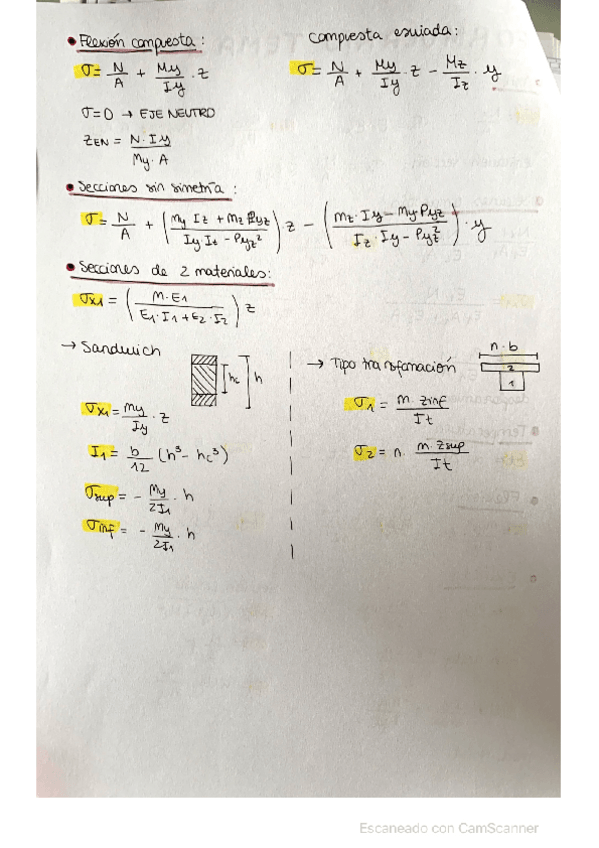 • Flexión compuesta:
σ = N/A + My/Iy · z
σ=0 → EJE NEUTRO
zEN = N·Iy / My·A
compuesta esviada:
σ = N/A + My/Iy z - Mz/Iz · y
• Secciones sin simetría:
σ = N/A + (My Iz + Mz Pyz / Iy Iz - Pyz²) · z - (Mz·Iy - My·Pyz / Iz·Iy - Pyz²) · y
• Secciones de 2 materiales:
σx1 = (M·E1 / E1·I1 + E2·I2) z
→ Sandwich
hc h
σx1 = My/Iy · z
I1 = b/12 (h³ - hc³)
σsup = - My/2I1 · h
σinf = - My/2I1 · h
→ Tipo transfamación
n·b
2
1
σ1 = m·zinf / It
σ2 = n · m·zsup / It
Escaneado con CamScanner